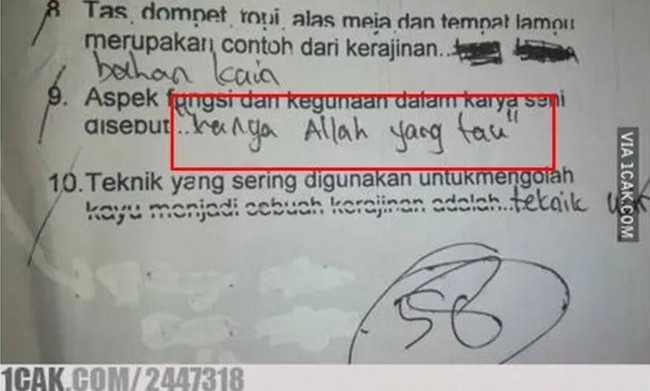 8 Tas, dompet, topi, alas meja dan tempat lampu
merupakan contoh dari kerajinan..
bahan kain
9. Aspek fungsi dan kegunaan dalam karya seni
disebut.."hanya Allah yang tau"
10. Teknik yang sering digunakan untukmengolah
kayu menjadi sebuah kerajinan adalah..teknik
56
VIA 1CAK.COM
1CAK.COM/2447318